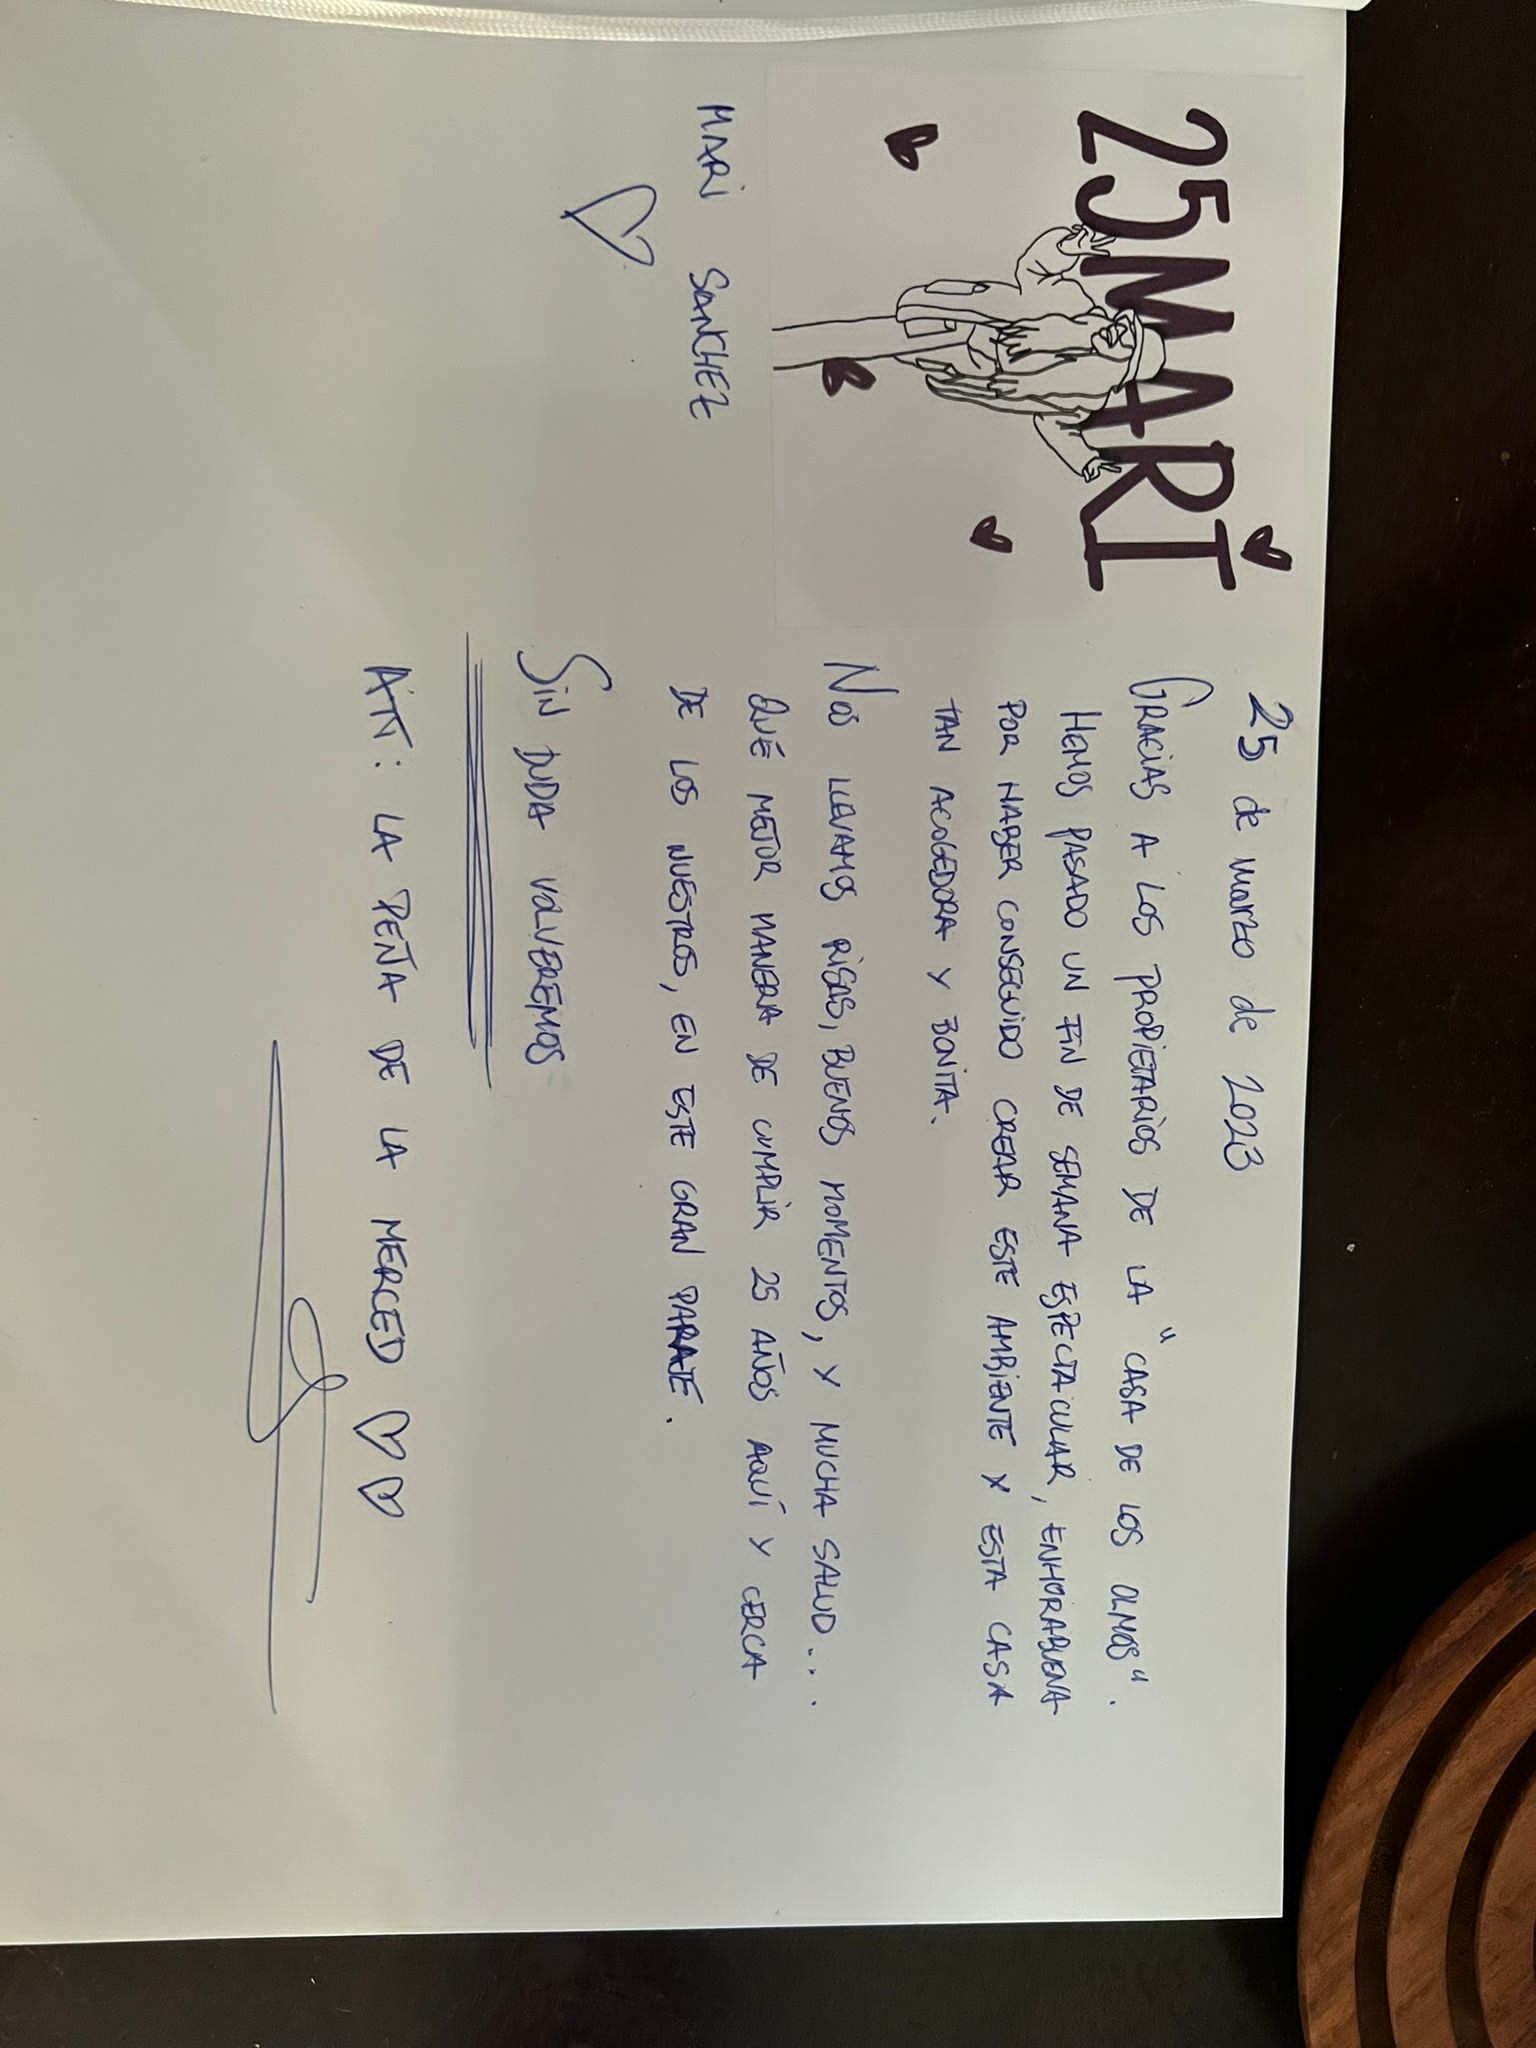 25 MARI
MARI SANCHEZ
25 de marzo de 2023
GRACIAS A LOS PROPIETARIOS DE LA "CASA DE LOS OLMOS".
HEMOS PASADO UN FIN DE SEMANA ESPECTACULAR, ENHORABUENA
POR HABER CONSEGUIDO CREAR ESTE AMBIENTE Y ESTA CASA
TAN ACOGEDORA Y BONITA.
NOS LLEVAMOS RISAS, BUENOS MOMENTOS, Y MUCHA SALUD...
QUÉ MEJOR MANERA DE CUMPLIR 25 AÑOS AQUÍ Y CERCA
DE LOS NUESTROS, EN ESTE GRAN PARAJE.
SIN DUDA VOLVEREMOS
ATT: LA PEÑA DE LA MERCED